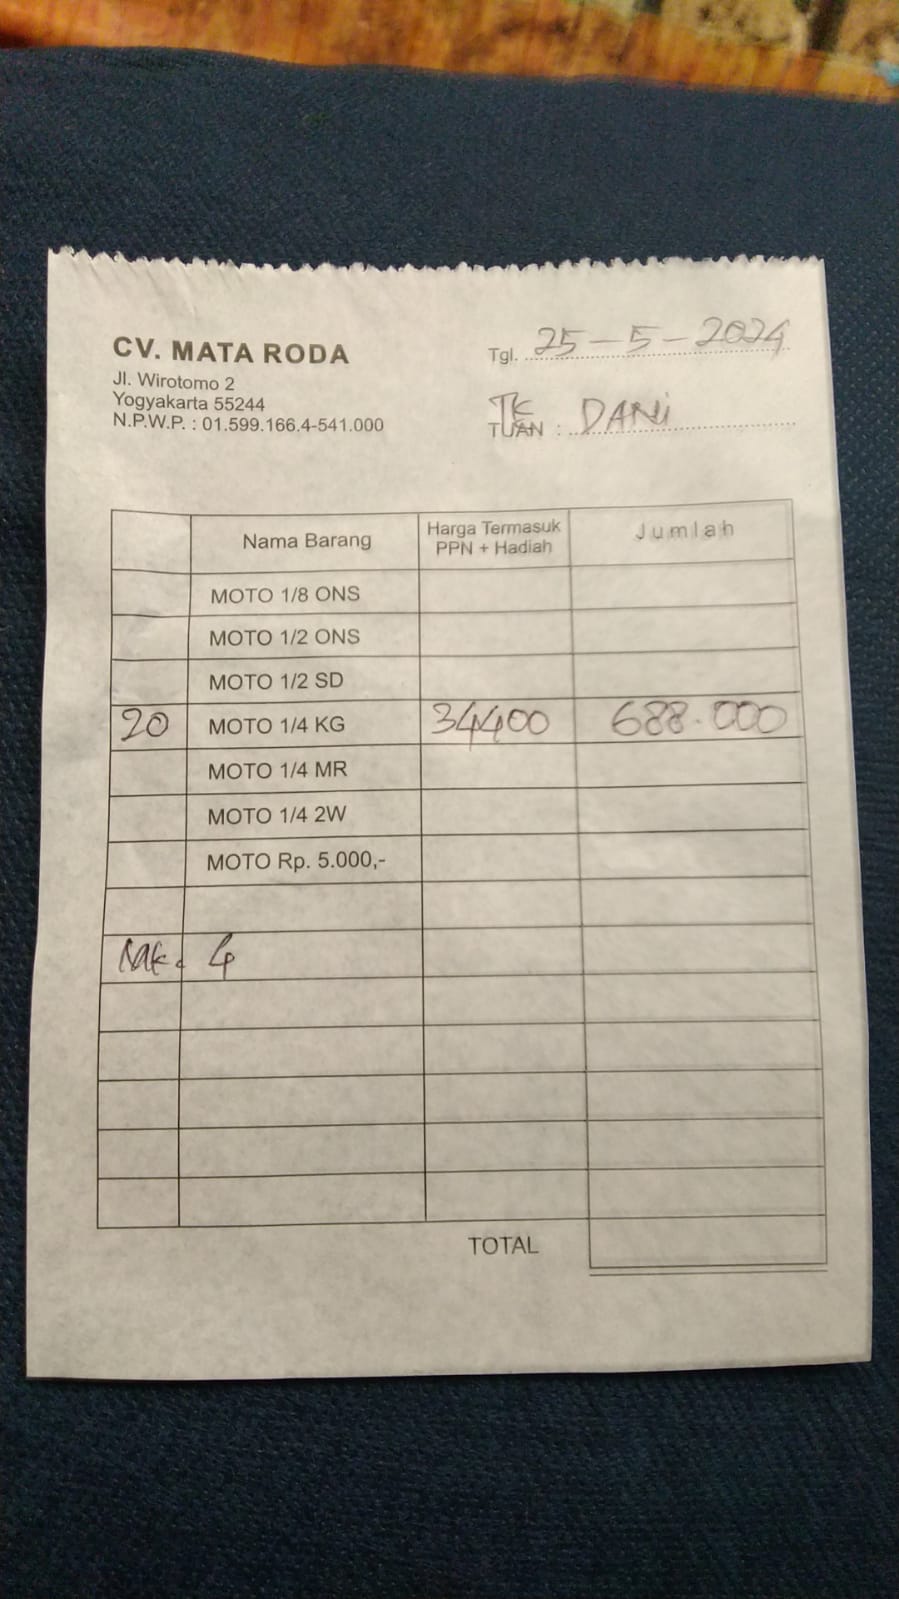 CV. MATA RODA
Jl. Wirotomo 2
Yogyakarta 55244
N.P.W.P. : 01.599.166.4-541.000
Tgl. 25-5-2024
TK
TUAN : DANI
Nama Barang Harga Termasuk PPN + Hadiah Jumlah
MOTO 1/8 ONS
MOTO 1/2 ONS
MOTO 1/2 SD
20 MOTO 1/4 KG 34400 688.000
MOTO 1/4 MR
MOTO 1/4 2W
MOTO Rp. 5.000,-
4
TOTAL